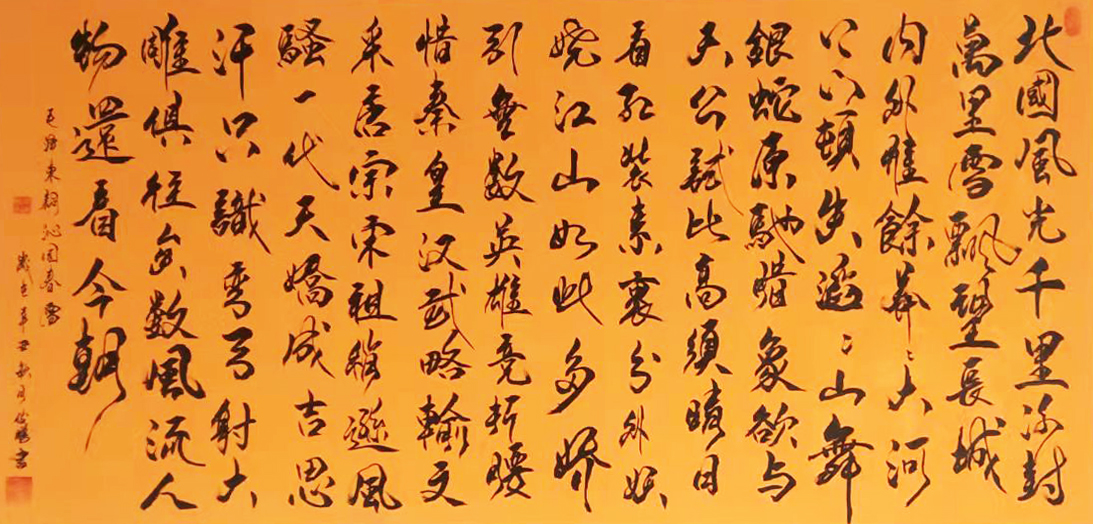 北國風光千里冰封
萬里雪飄望長城
内外惟餘莽〻大河
上下頓失滔〻山舞
銀蛇原馳蜡象欲与
天公試比高須晴日
看紅裝素裹分外妖
嬈江山如此多娇
引無数英雄竞折腰
惜秦皇汉武略輸文
采唐宗宋祖稍遜風
騷一代天嬌成吉思
汗只識弯弓射大
雕俱往矣数風流人
物還看今朝
毛澤東詞沁園春雪
歲在辛丑秋月書